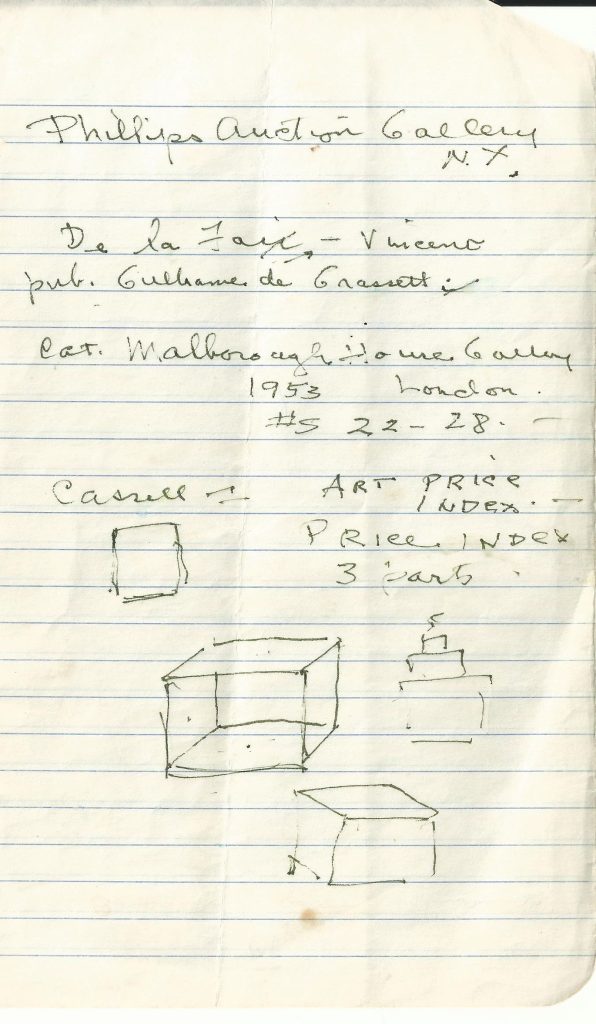 Phillips Auction Gallery
N.Y.
De la Faix, - Vincent
pub. Gulhame de Grassett
Cat. Malborough House Gallery
1953 London.
#S 22-28. -
Cassell -
ART PRICE
INDEX. -
PRICE INDEX
3 parts